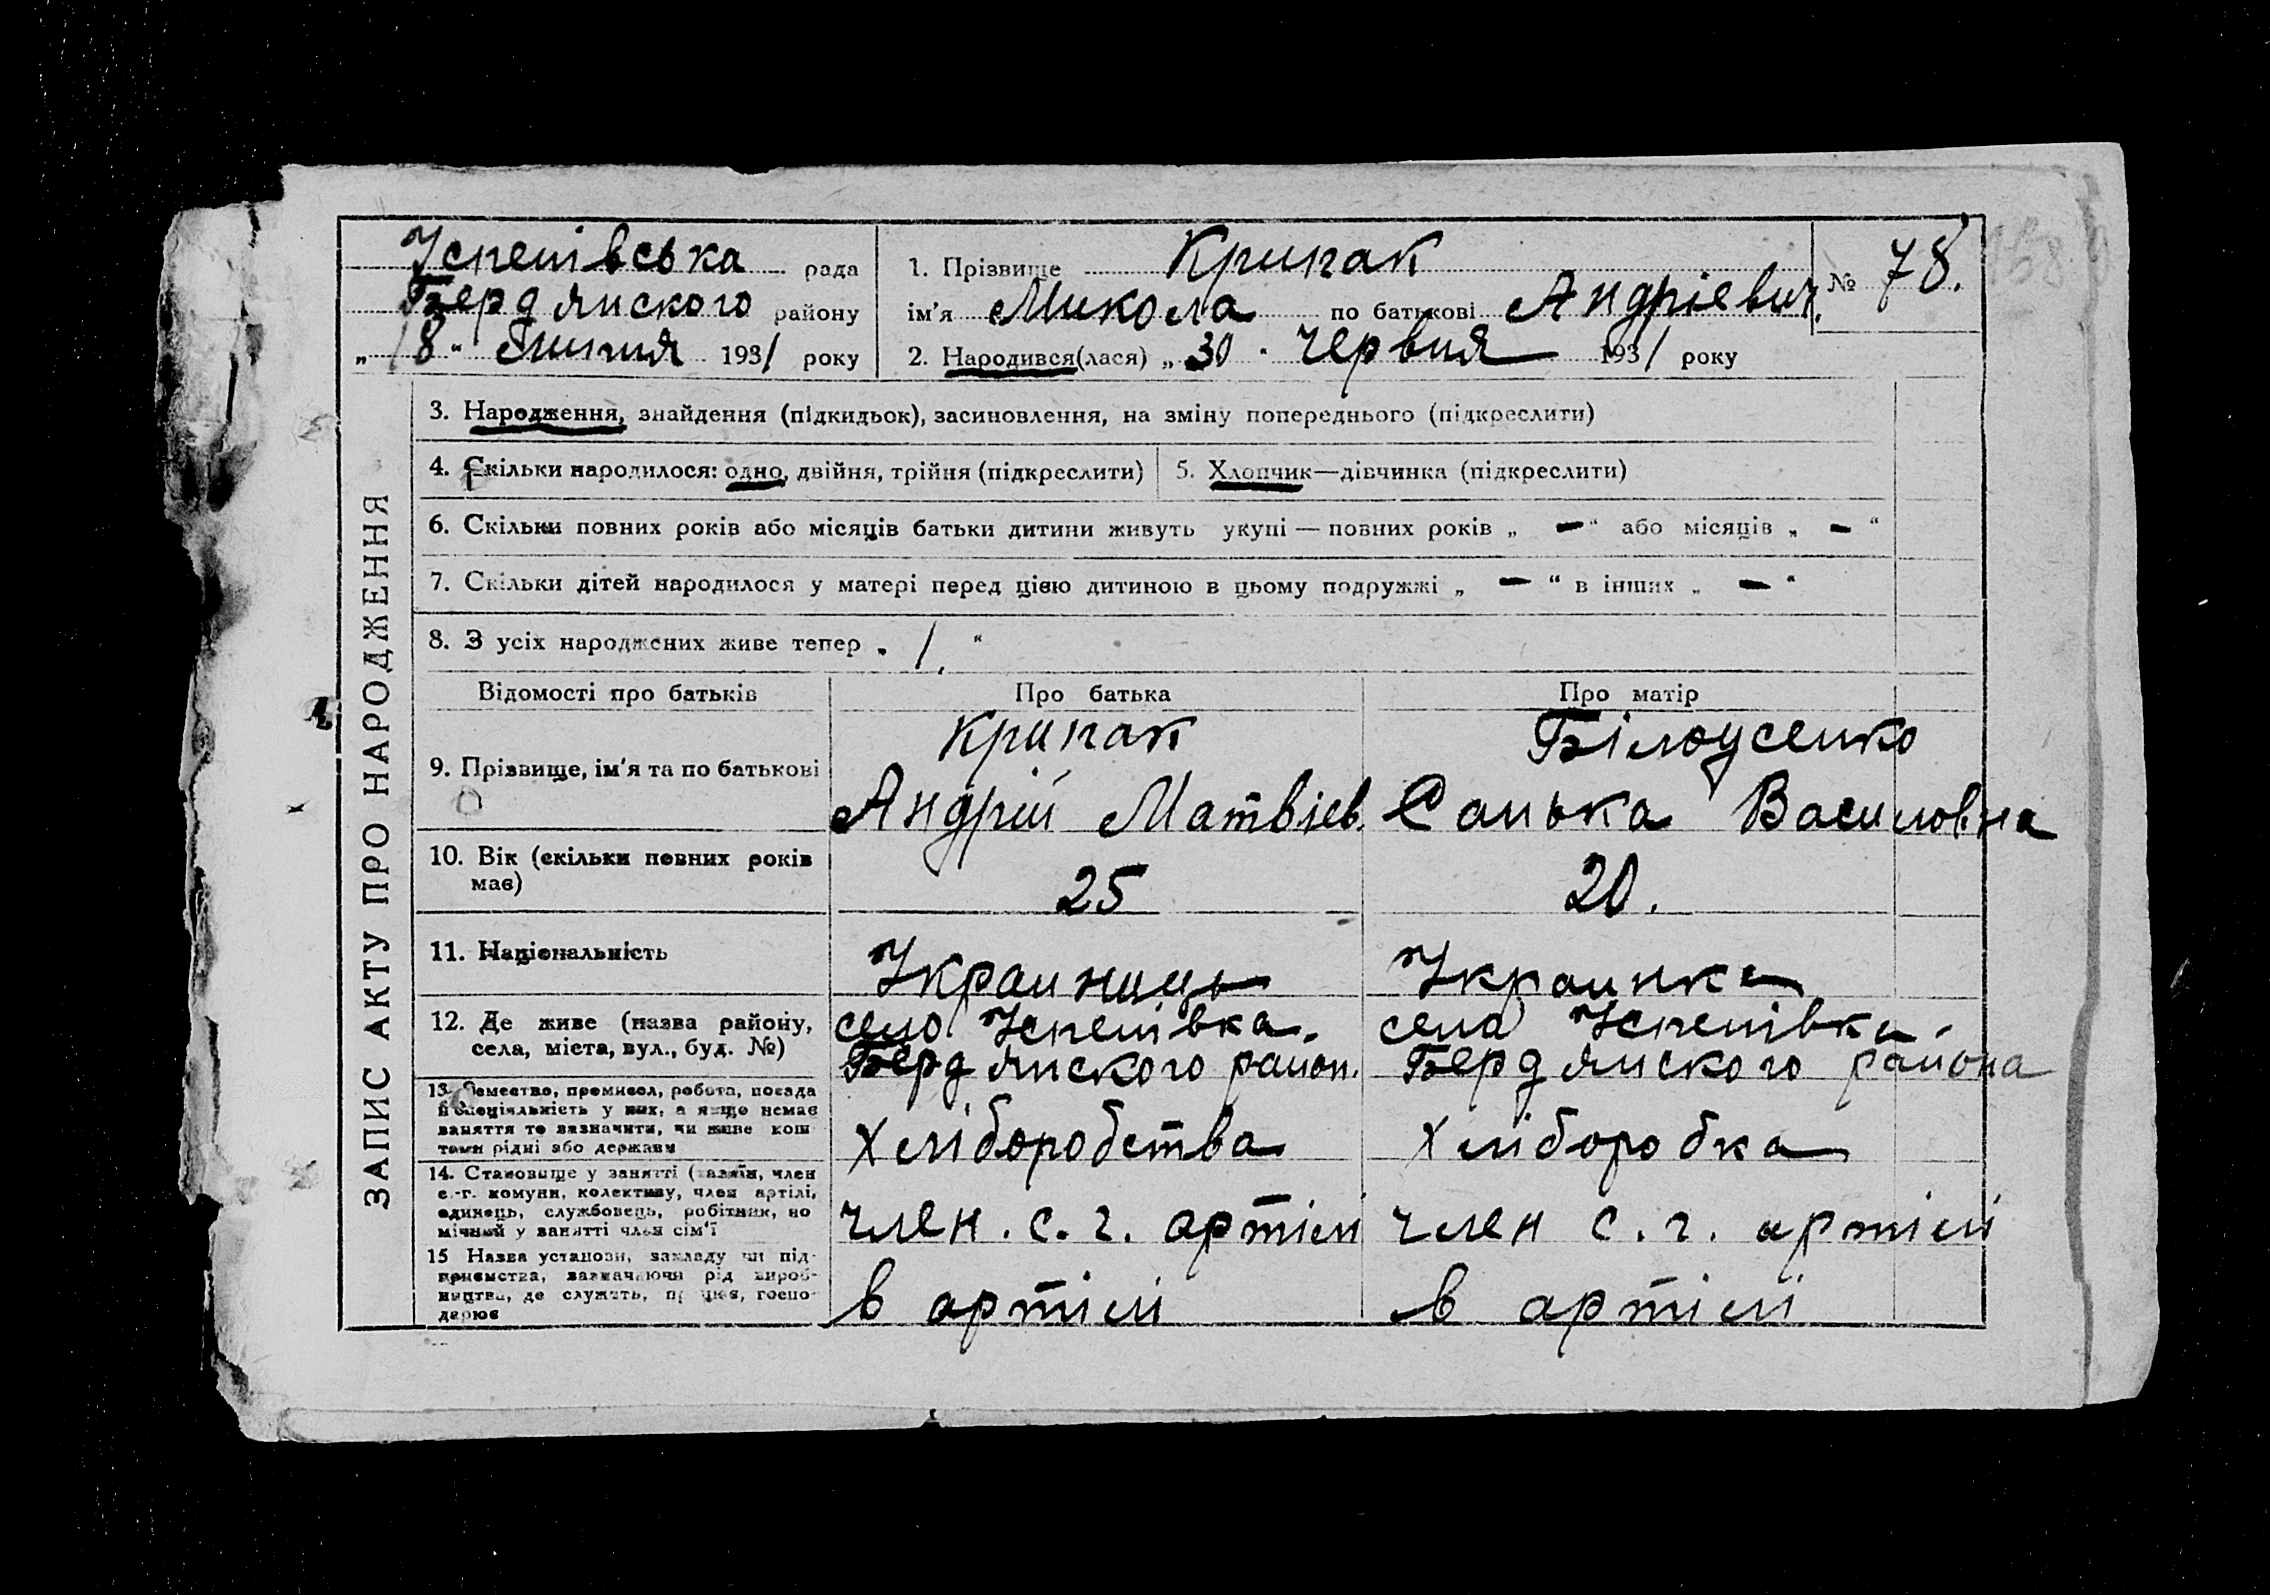 Успенівська рада
Бердянского району
„18“ Липня 1931 року
1. Прізвище Крипак
ім'я Микола по батькові Андрієвич.
№ 78.
2. Народився(лася) „30“ червня 1931 року
ЗАПИС АКТУ ПРО НАРОДЖЕННЯ
3. Народження, знайдення (підкидьок), засиновлення, на зміну попереднього (підкреслити)
4. Скільки народилося: одно, двійня, трійня (підкреслити)
5. Хлопчик—дівчинка (підкреслити)
6. Скільки повних років або місяців батьки дитини живуть укупі — повних років „ — “ або місяців „ — “
7. Скільки дітей народилося у матері перед цією дитиною в цьому подружжі „ — “ в інших „ — “
8. З усіх народжених живе тепер „ 1. “
Відомості про батьків Про батька Про матір
9. Прізвище, ім'я та по батькові
Крипак
Андрій Матвієв.
Білоусенко
Санька Василовна
10. Вік (скільки повних років
має)
25
20.
11. Національність
Украинець
Украинка
12. Де живе (назва району,
села, міста, вул., буд. №)
село Успенівка.
Бердянского район.
села Успенівки.
Бердянского района
13. Ремество, промисел, робота, посада
й спеціяльність у них, а якщо немає
заняття то зазначити, чи живе кош
тами рідні або держави
Хліборобства
Хліборобка
14. Становище у занятті (хазяїн, член
с.-г. комуни, колективу, член артілі,
одинець, службовець, робітник, по
мічний у занятті член сім'ї
член. с. г. артілі
член с. г. артілі
15 Назва установи, закладу чи під-
приємства, зазначаючи рід вироб-
ництва, де служить, працює, госпо-
дарює
в артілі
в артілі